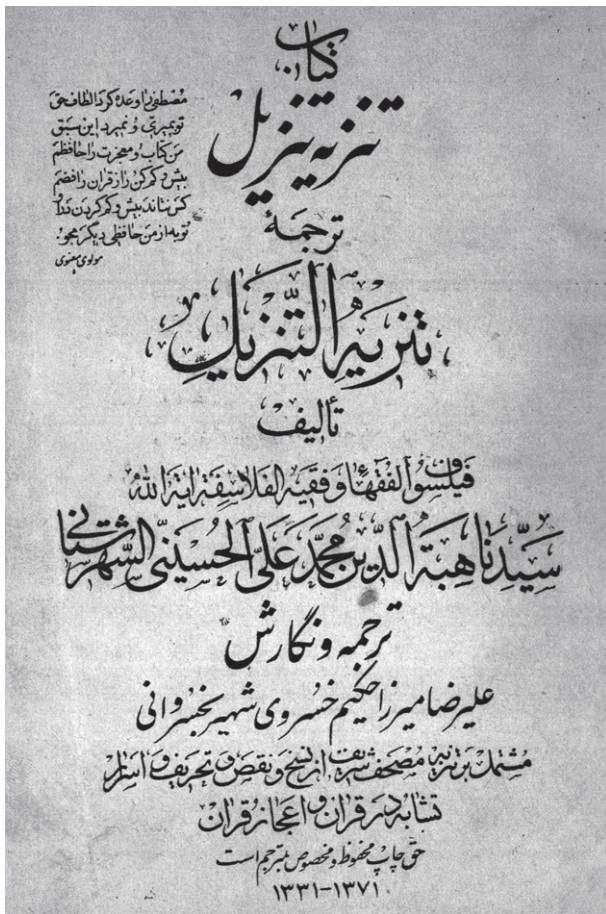 کتاب
تنزیه تنزیل
مصطفی را وعده کرد الطاف حق
تو بمیری و نمیرد این سبق
من کتاب و معجزت را حافظم
بیش و کم کن را ز قران رافضم
کس نتاند بیش و کم کردن در او
تو به از من حافظی دیگر مجو
مولوی معنوی
ترجمهٔ
تنزیه التّنزیل
تألیف
فیلسوف الفقهاء و فقیه الفلاسفة ایة الله
سیّدنا هبة الدّین محمّد علی الحسینی الشهرستانی
ترجمه و نگارش
علیرضا میرزا حکیم خسروی شهیر بخسروانی
مشتمل بر تنزیه مصحف شریف از نسخ و نقص و تحریف و اسرار
تشابه در قران و اعجاز قران
حق چاپ محفوظ و مخصوص مترجم است
۱۳۷۱-۱۳۳۱